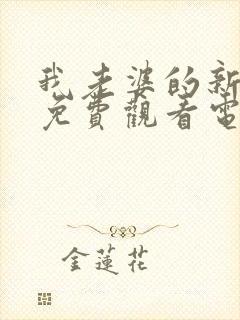 我老婆的新
免費觀看電
金蓮花